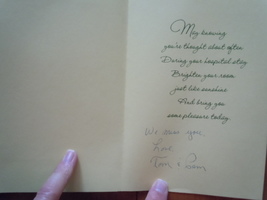 May knowing
you're thought about often
During your hospital stay
Brighten your room
just like sunshine
And bring you
some pleasure today.
We miss you.
Love
Tom & Pam